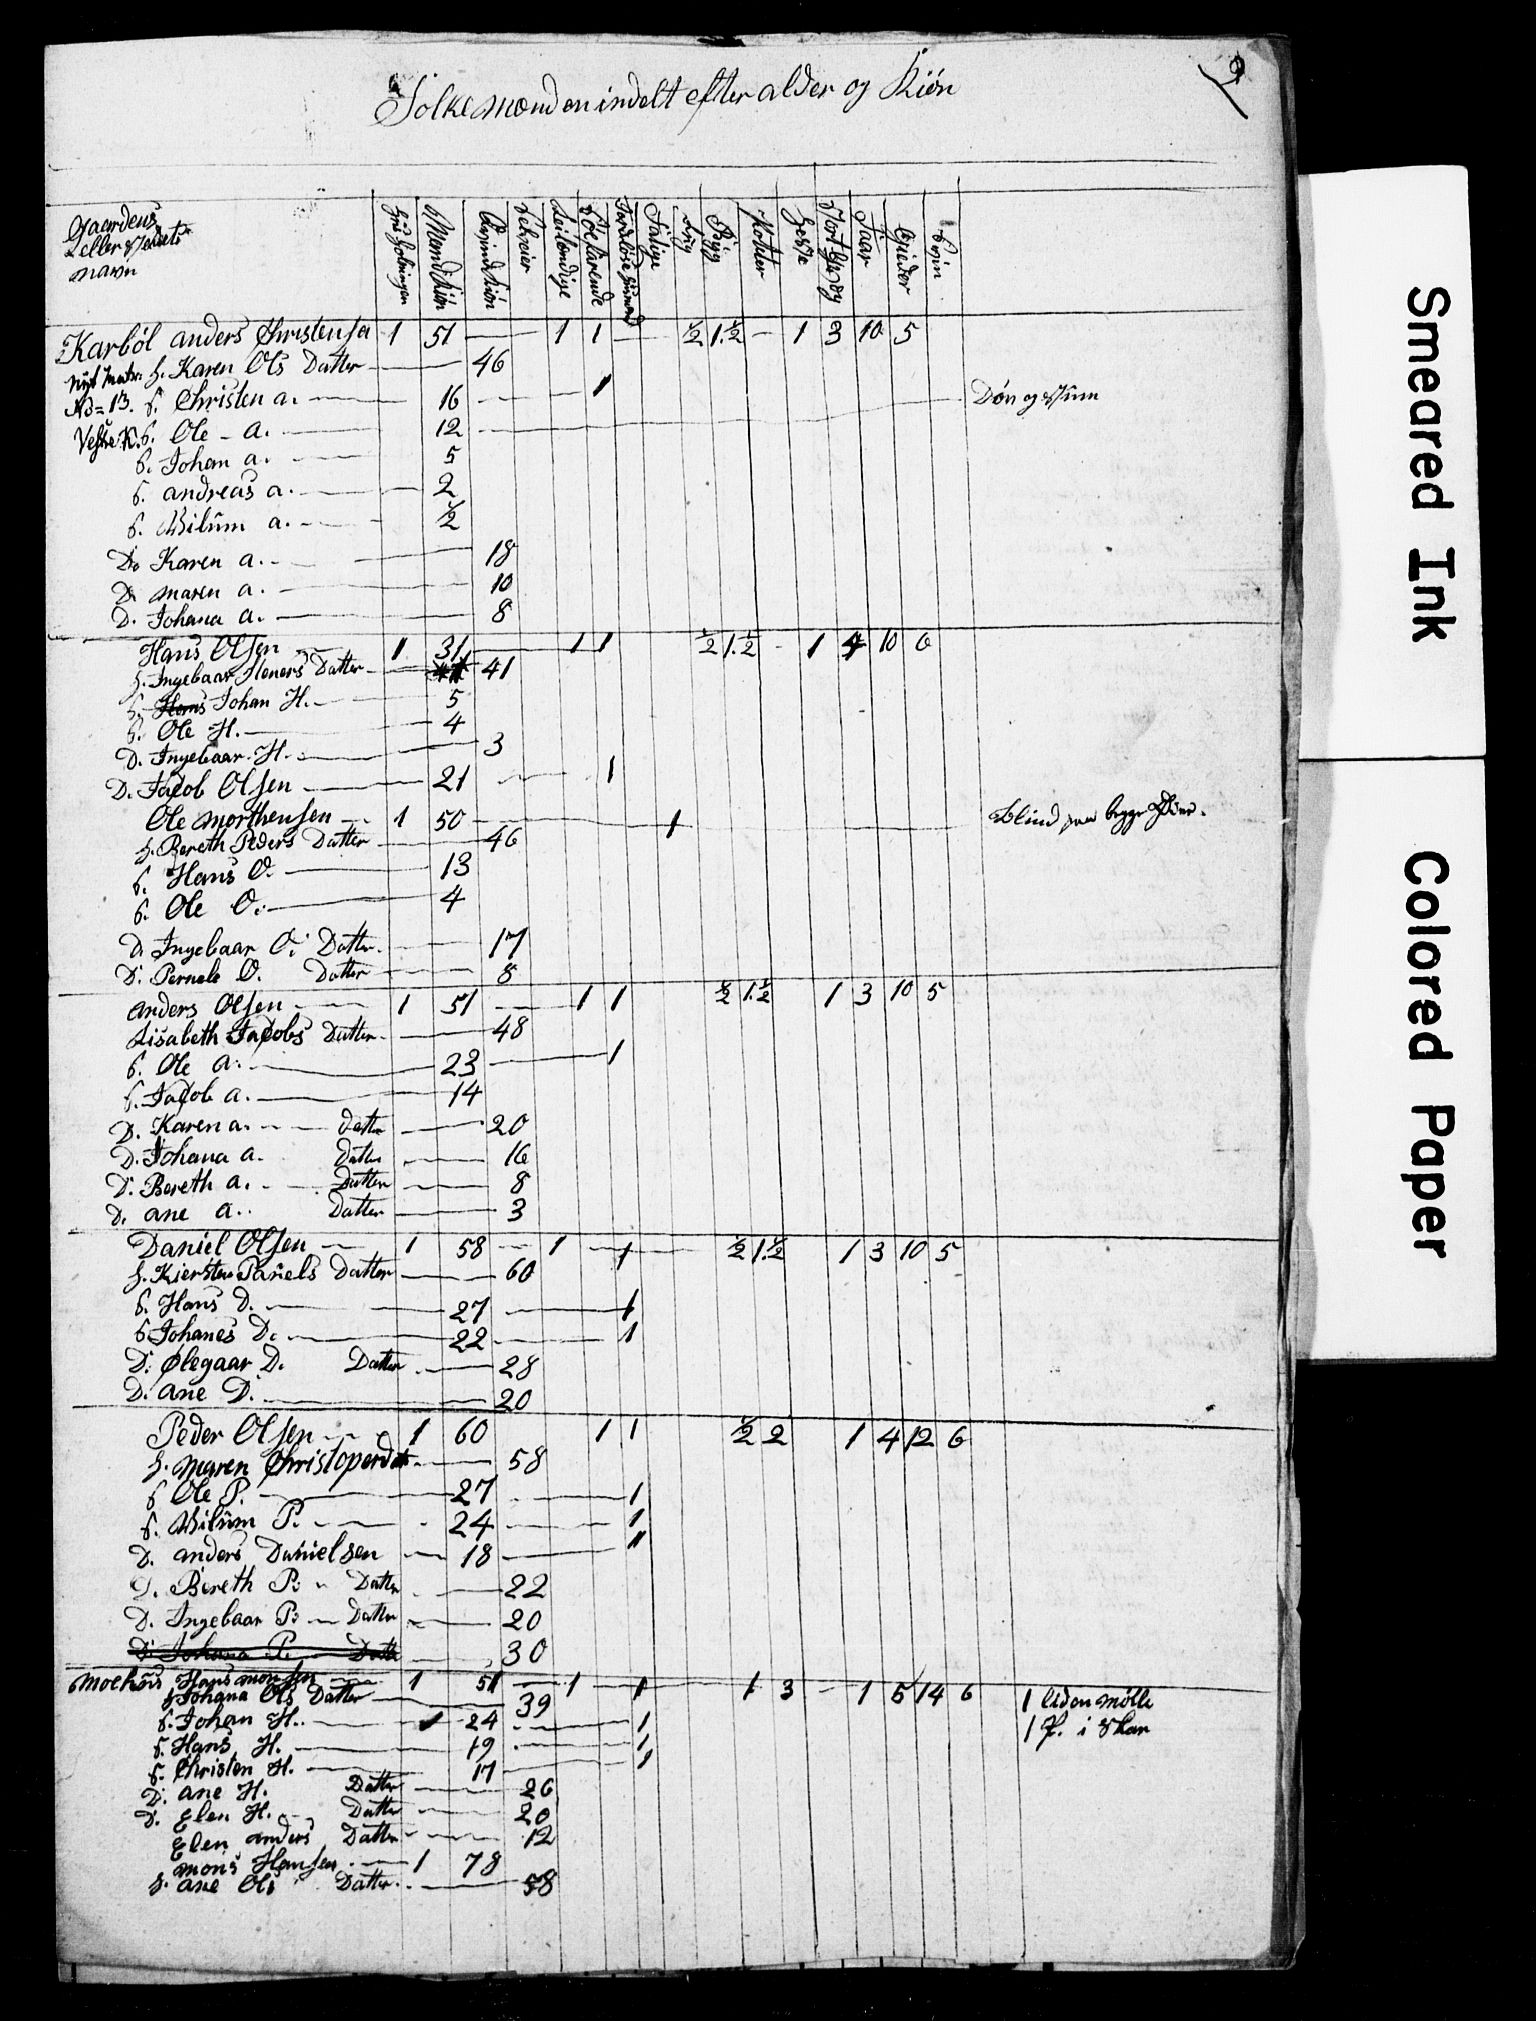 2
Folkemænden indelt efter alder og Kiøn
Gaardens
eller stædets
navn
Huusholdningen
Mandkiøn
Qvindekiøn
Selveier
Leilændige
Jordløse Husmænd
Fattige
Rug
Byg
Poteter
Heste
Stort Qvæg
Faar
Gieder
Svin
Karbôl anders Christensen 1 51 1 1 ½ 1.½ 1 3 10 5
Nÿt matr. H. Karen Ols Datter 46
No = 13. S. Christen a. 16 1 Døv og stum
Vestre K. S. Ole a. 12
S. Johan a. 5
S. andreas a. 2
S. Wilûm a. ½
D. Karen a. 18
D. maren a. 10
D. Johana a. 8
Hans Olsen 1 31 1 1 ½ 1.½ 1 4 10 6
H. Ingebaar Steners Datter 41
S. Hans Johan H. 5
S. Ole H. 4
D. Ingebaar H. 3
D. Jacob Olsen 21 1
Ole morthensen 1 50 1 Blind paa begge Øine.
H. Bereth Peders Datter 46
S. Hans O. 13
S. Ole O. 4
D. Ingebaar O. Datter 17
D. Pernele O. Datter 8
anders Olsen 1 51 1 1 ½ 1.½ 1 3 10 5
Lisabeth Jacobs Datter 48
S. Ole a. 23 1
S. Jacob a. 14
D. Karen a. datter 20
D. Johana a. Datter 16
D. Bereth a. Datter 8
D. ane a. Datter 3
Daniel Olsen 1 58 1 1 ½ 1.½ 1 3 10 5
H. Kiersten Panels Datter 60
S. Hans D. 27 1
S. Johanes D. 22 1
D. Ølegaar D. Datter 28
D. ane D. 20
Peder Olsen 1 60 1 1 ½ 2 1 4 12 6
H. maren Christoperdat 58
S Ole P. 27 1
S. Wilûm P. 24 1
D. anders Danielsen 18 1
D. Bereth P. Datter 22
D. Ingebaar P. Datter 20
D. Johana P. Datter 30
Hans monsen 1 51 1 1 1 3 1 5 14 6 1 liden mølle
H Johana Ols Datter 39
S. Johan H. 1 24 1 1 P. i Skar
S. Hans H. 19 1
S. Christen H. 17 1
D. ane H. Datter 26
D. Elen H. Datter 20
Elen anders Datter 12
mons Hansen 1 78
H. ane Ols Datter 58
Smeared Ink
Colored Paper